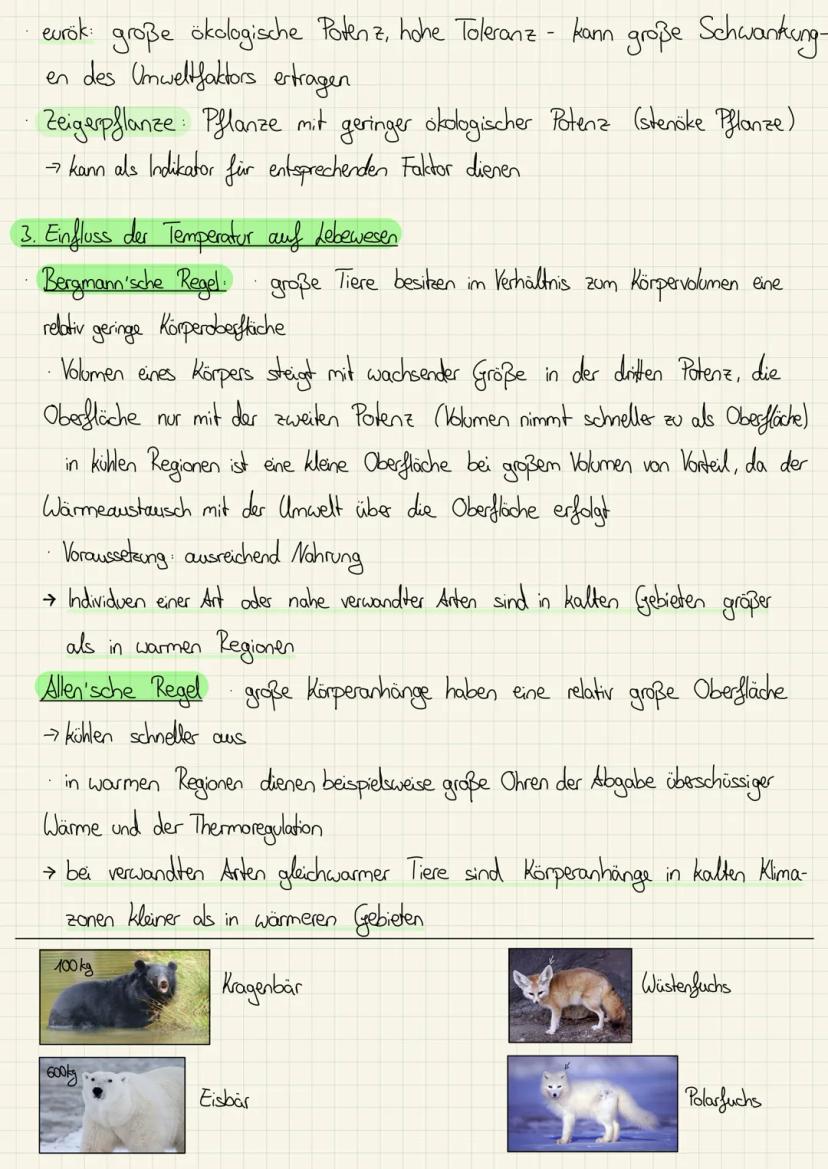 · eurök: große ökologische Potenz, hohe Toleranz - kann große Schwankung-
en des Umweltfaktors ertragen
· Zeigerpflanze: Pflanze mit geringer ökologischer Potenz (stenöke Pflanze)
→ kann als Indikator für entsprechenden Faktor dienen
3. Einfluss der Temperatur auf Lebewesen
· Bergmann'sche Regel: · große Tiere besitzen im Verhältnis zum Körpervolumen eine
relativ geringe Körperoberfläche
· Volumen eines Körpers steigt mit wachsender Größe in der dritten Potenz, die
Oberfläche nur mit der zweiten Potenz (Volumen nimmt schneller zu als Oberfläche)
in kühlen Regionen ist eine kleine Oberfläche bei großem Volumen von Vorteil, da der
Wärmeaustausch mit der Umwelt über die Oberfläche erfolgt
· Voraussetzung: ausreichend Nahrung
→ Individuen einer Art oder nahe verwandter Arten sind in kalten Gebieten größer
als in warmen Regionen
Allen'sche Regel · große Körperanhänge haben eine relativ große Oberfläche
→ kühlen schneller aus
· in warmen Regionen dienen beispielsweise große Ohren der Abgabe überschüssiger
Wärme und der Thermoregulation
→ bei verwandten Arten gleichwarmer Tiere sind Körperanhänge in kalten Klima-
zonen kleiner als in wärmeren Gebieten
100kg Kragenbär
Wüstenfuchs
600kg Eisbär
Polarfuchs